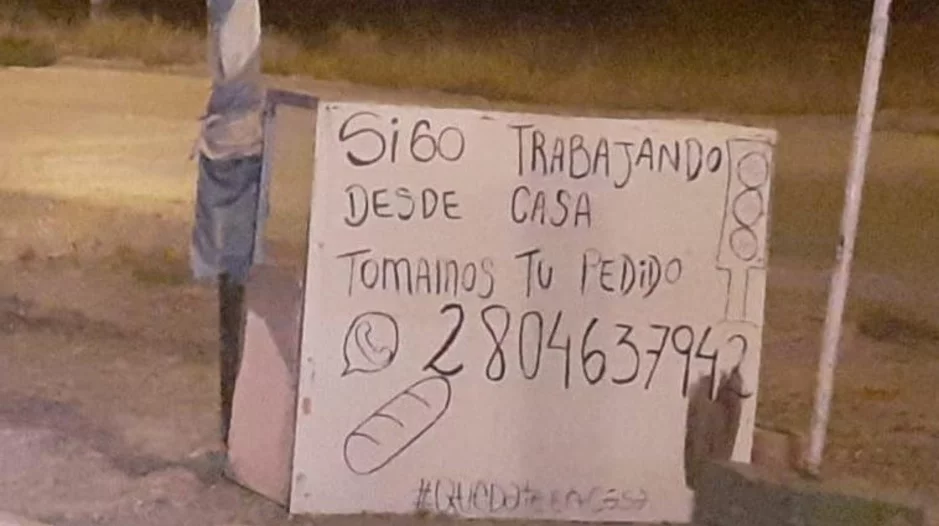 SiGO TRABAJANDO
DESDE CASA
TOMAMOS TU PEDiDO
2804637942
#QUEDATEENCASA